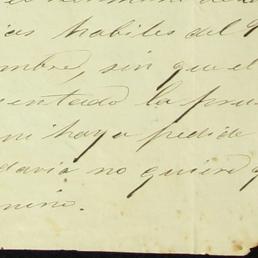 ias habiles del
mbre, sin que el
entado la pru
ni haya pedido
davia no quiere q
nino.